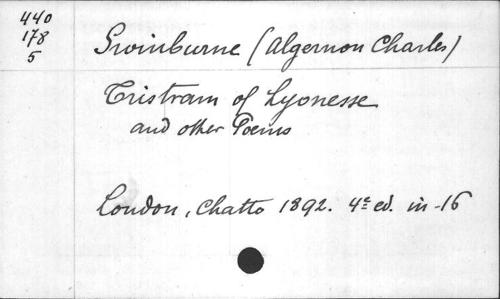 440
178
5
Swinburne (Algernon Charles)
Tristram of Lyonesse
and other Poems
London, Chatto 1892. 4e ed. in-16